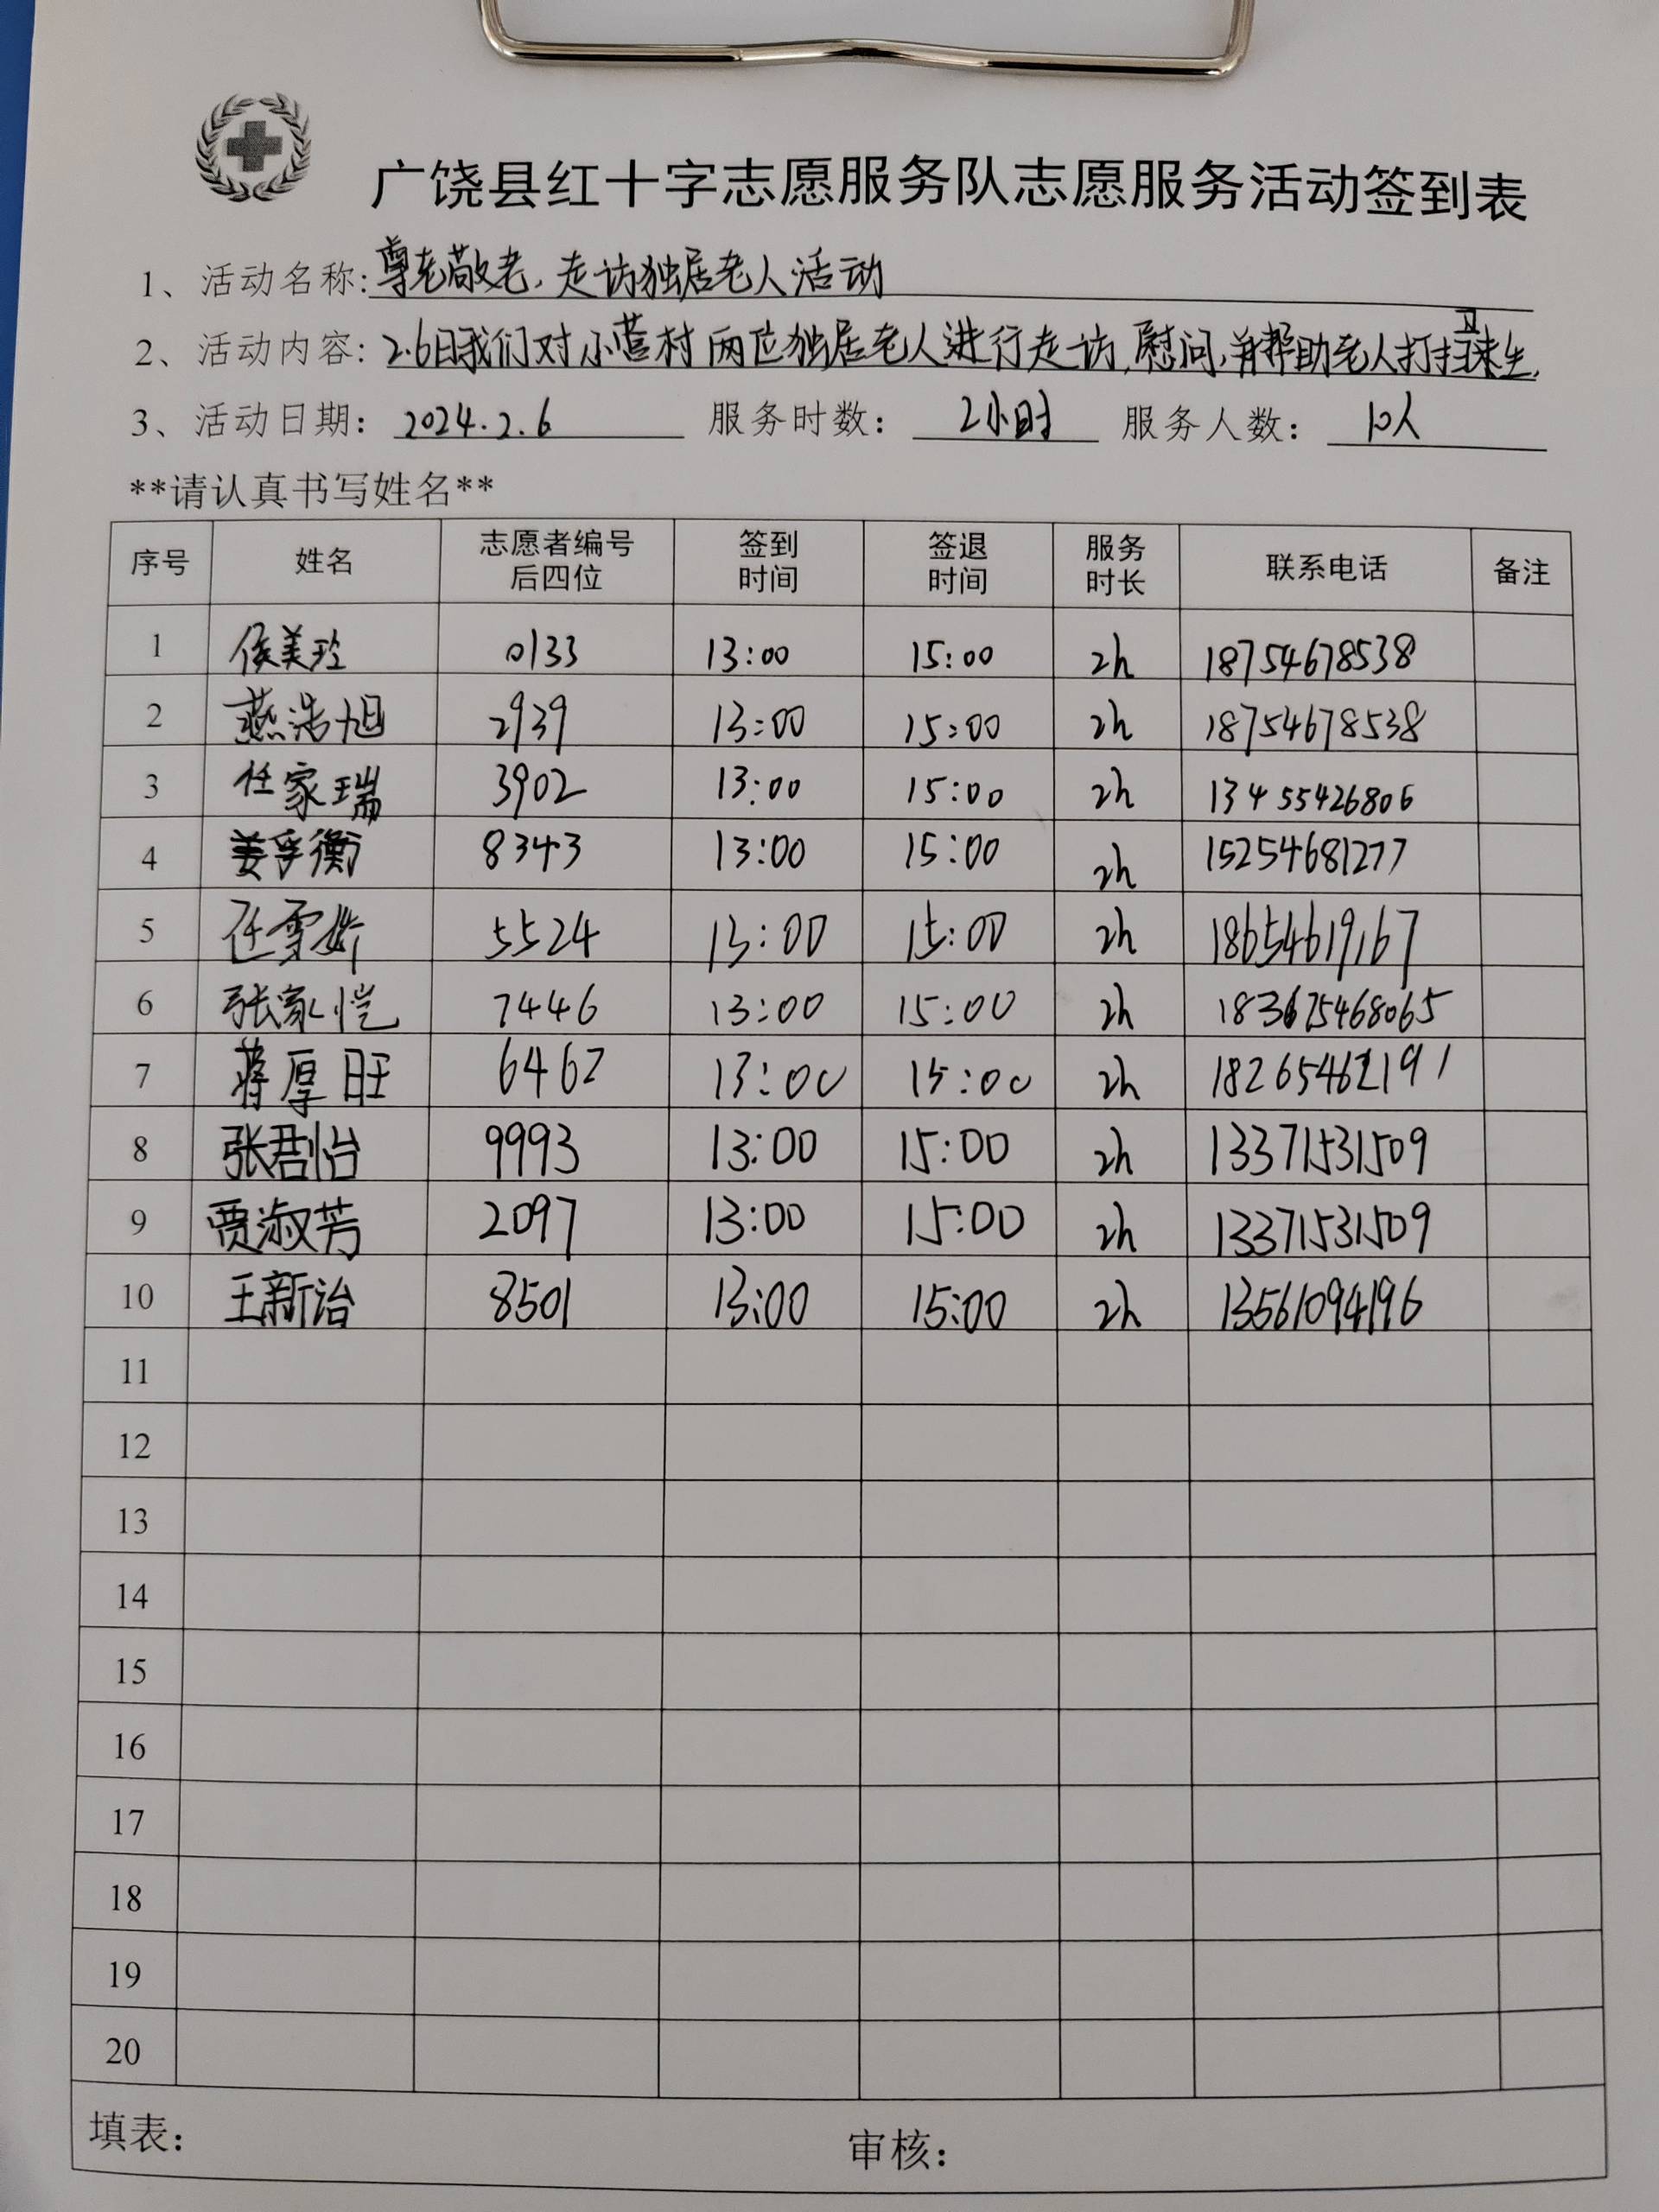 广饶县红十字志愿服务队志愿服务活动签到表
1、活动名称:尊老敬老,走访独居老人活动
2、活动内容:2.6日我们对小营村两位独居老人进行走访,慰问,并帮助老人打扫卫生.
3、活动日期: 2024.2.6 服务时数: 2小时 服务人数: 10人
**请认真书写姓名**
序号 姓名 志愿者编号后四位 签到时间 签退时间 服务时长 联系电话 备注
1 侯美玲 0133 13:00 15:00 2h 18754678538
2 燕浩旭 2939 13:00 15:00 2h 18754678538
3 任家瑞 3902 13:00 15:00 2h 13455426806
4 姜孚衡 8343 13:00 15:00 2h 15254681277
5 任雪娇 5524 13:00 15:00 2h 18654619167
6 张家恺 7446 13:00 15:00 2h
7 蒋厚旺 6462 13:00 15:00 2h 18265462191
8 张君怡 9993 13:00 15:00 2h 13371531509
9 贾淑芳 2097 13:00 15:00 2h 13371531509
10 王新治 8501 13:00 15:00 2h 13561094196
11
12
13
14
15
16
17
18
19
20
填表: 审核: